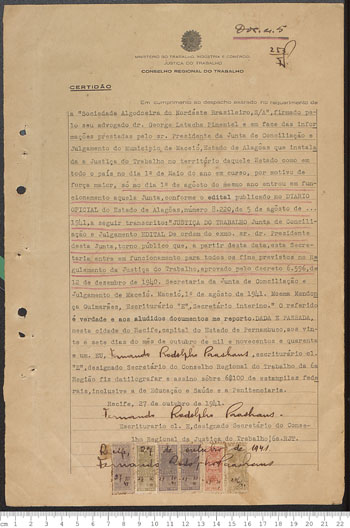 Doc. n. 5
257
MINISTERIO DO TRABALHO, INDUSTRIA E COMERCIO
JUSTIÇA DO TRABALHO
CONSELHO REGIONAL DO TRABALHO
CERTIDÃO
Em cumprimento ao despacho exarado no requerimento de
a "Sociedade Algodoeira do Nordeste Brasileiro,S/A",firmado pe-
lo seu advogado dr. George Latache Pimentel e em face das infor-
mações prestadas pelo sr. Presidente da Junta de Conciliação e
Julgamento do Municipio de Maceió,Estado de Alagôas,que instala-
da a Justiça do Trabalho no territorio daquele Estado como em
todo o país no dia 1º de Maio do ano em curso, por motivo de
força maior, só no dia 1º de agosto do mesmo ano entrou em fun-
cionamento aquela Junta,conforme o edital publicado no DIARIO
OFICIAL do Estado de Alagôas,numero 8.220,de 5 de agosto de
1941,a seguir transcrito:"JUSTIÇA DO TRABALHO Junta de Concilia-
ção e Julgamento EDITAL De ordem do exmo. sr. dr. Presidente
desta Junta,torno público que, a partir desta data,esta Secre-
taria entra em funcionamento para todos os fins previstos no Re-
gulamento da Justiça do Trabalho,aprovado pelo decreto 6.596,de
12 de dezembro de 1940. Secretaria da Junta de Conciliação e
Julgamento de Maceió. Maceió,1º de agosto de 1941. Noeme Mendon-
ça Guimarães, Escriturário "E",Secretário interino." O referido
é verdade e aos aludidos documentos me reporto.DADA E PASSADA,
nesta cidade do Recife,capital do Estado de Pernambuco,aos vin-
te e sete dias do mês de outubro de mil e novecentos e quaren-
ta e um. EU, Fernando Rodolpho escriturário cl.
"E",designado Secretário do Conselho Regional do Trabalho da 6a
Região fiz datilografar e assino sobre 6$100 de estampilhas fede-
rais,inclusive a de Educação e Saúde e a Penitenciaria.
Recife, 27 de outubro de 1941.
Fernando Rodolpho
Escriturario cl. E,designado Secretário do Conse-
lho Regional da Justiça do Trabalho,6a.REP.
Recife, 27 de outubro de 1941
Fernando Rodolpho